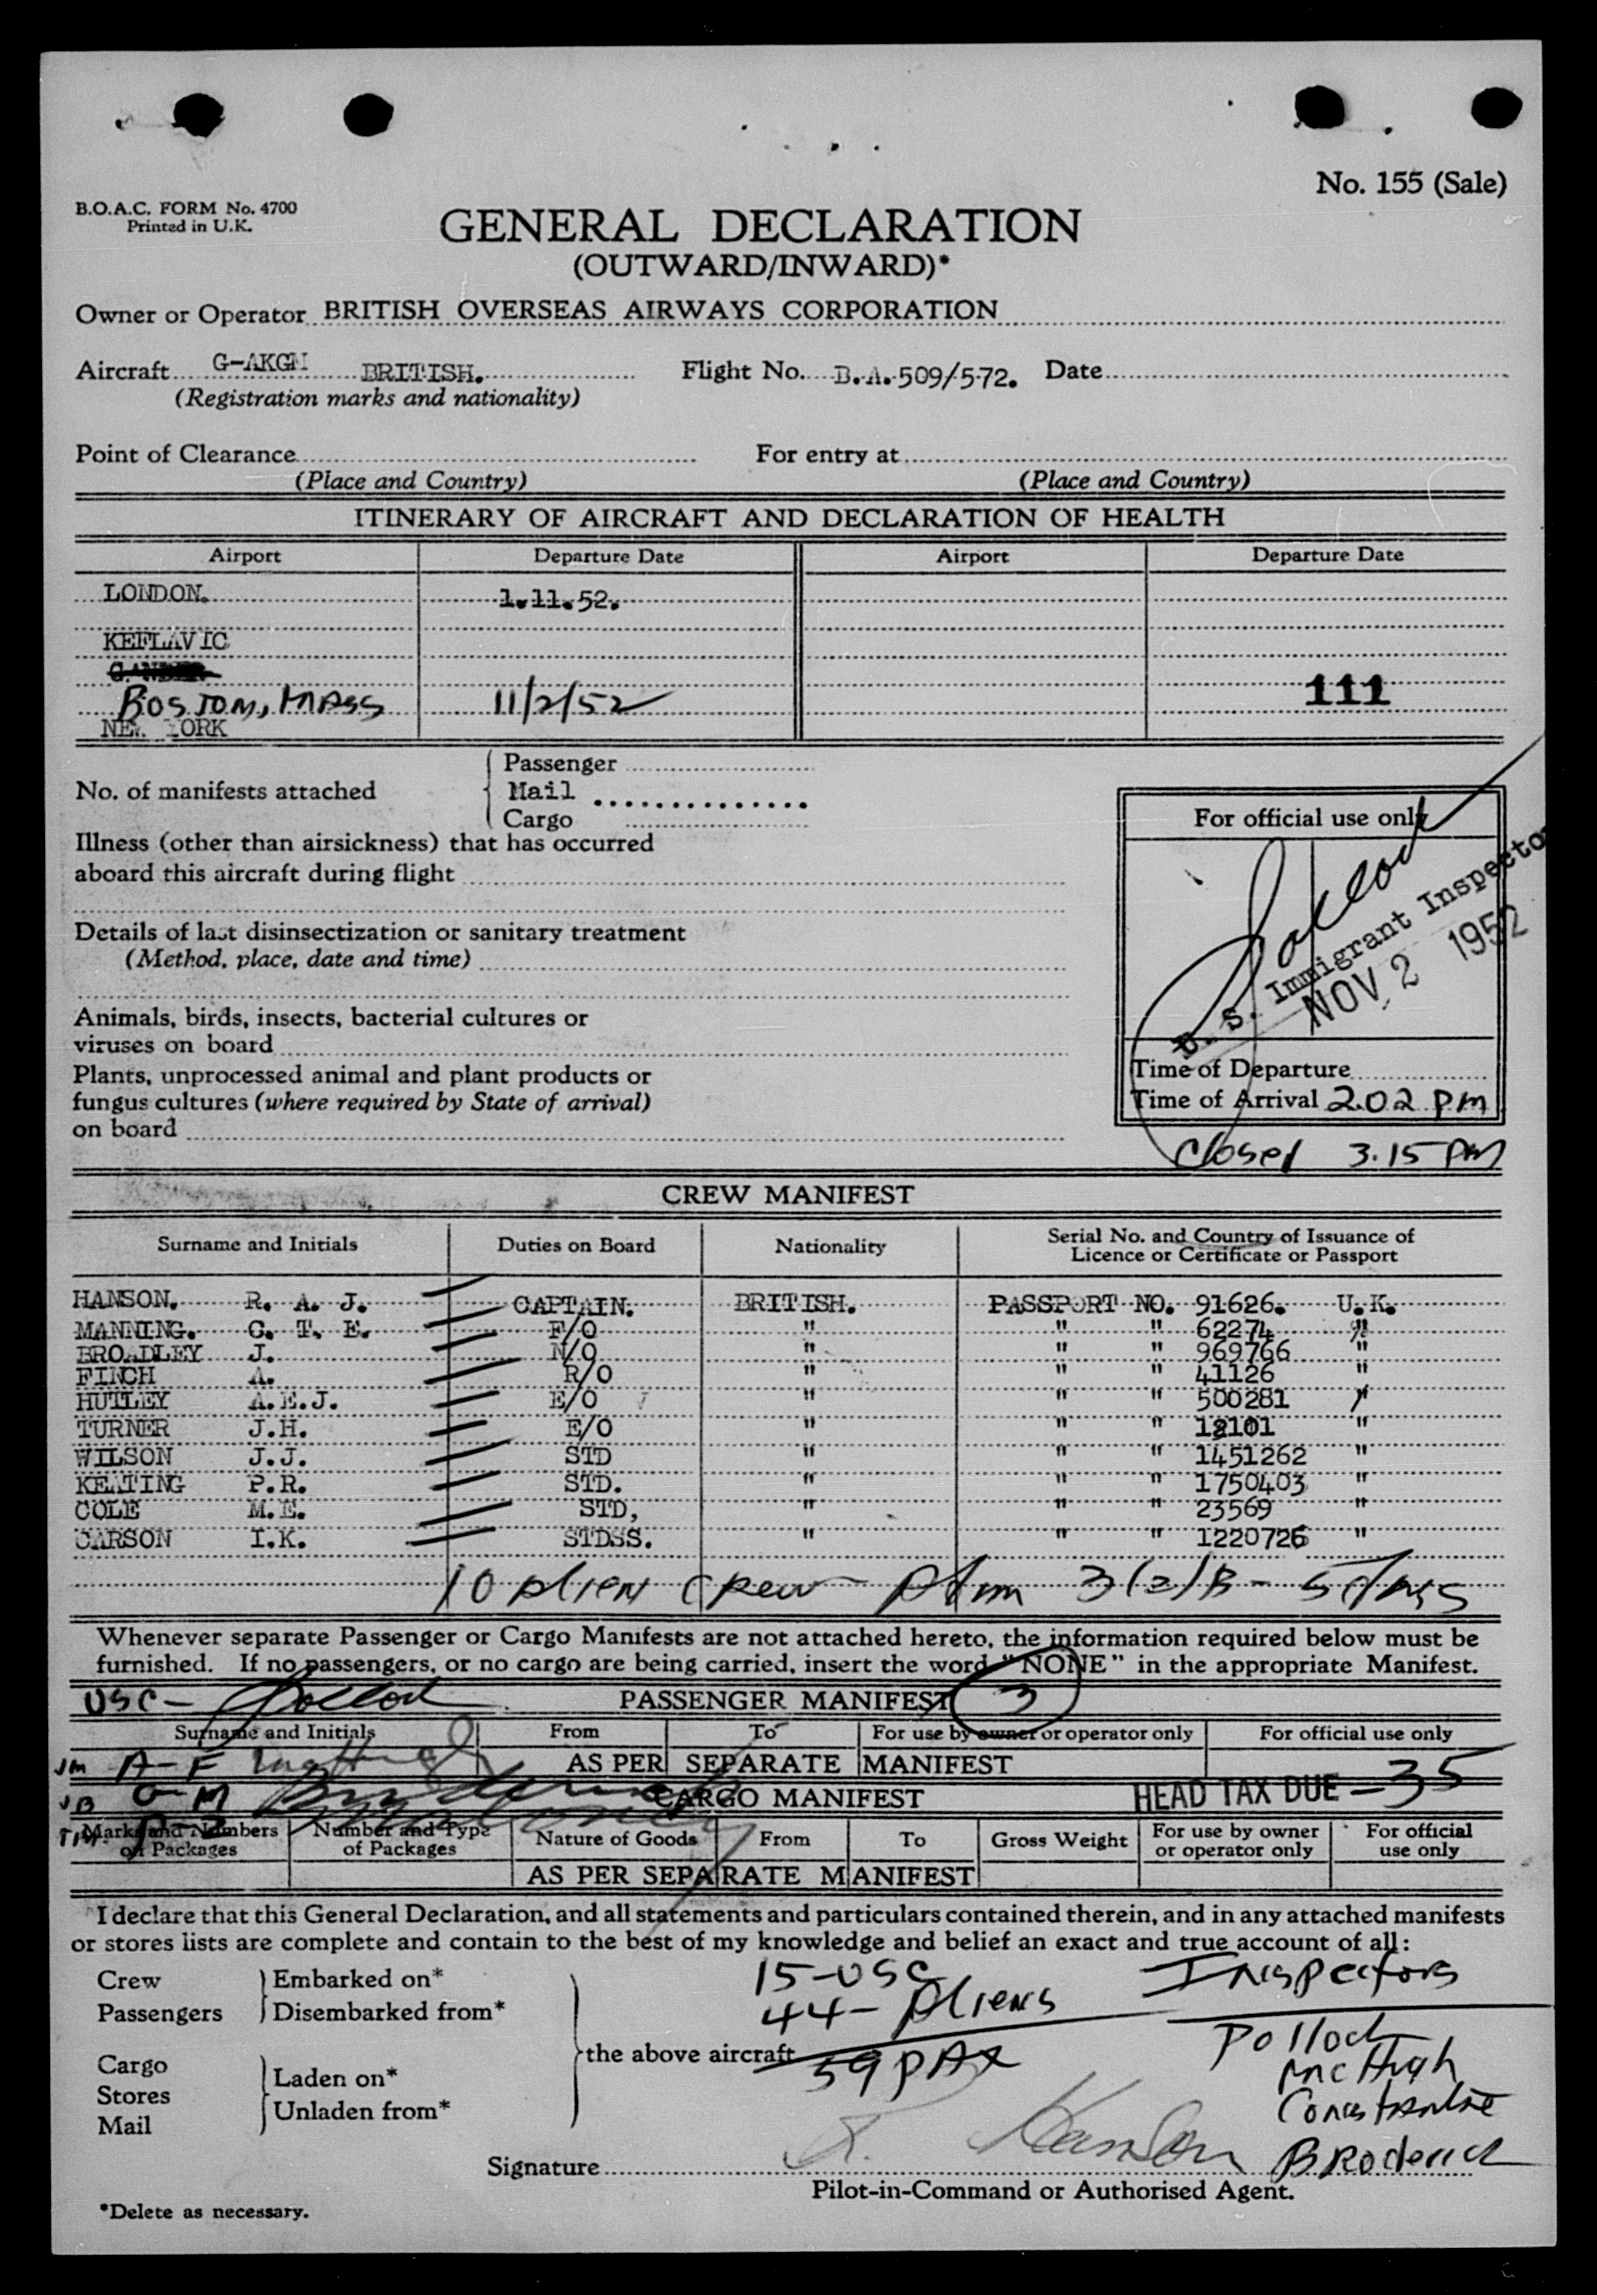 No. 155 (Sale)
B.O.A.C. FORM No. 4700
Printed in U.K.
GENERAL DECLARATION
(OUTWARD/INWARD)*
Owner or Operator BRITISH OVERSEAS AIRWAYS CORPORATION
Aircraft G-AKGM BRITISH. Flight No. B.A. 509/572. Date
(Registration marks and nationality)
Point of Clearance For entry at
(Place and Country) (Place and Country)
ITINERARY OF AIRCRAFT AND DECLARATION OF HEALTH
Airport Departure Date Airport Departure Date
LONDON. 1.11.52.
KEFLAVIC
111
BOSTON, MASS 11/2/52
NEW YORK
Passenger
No. of manifests attached Mail
Cargo
For official use only
Illness (other than airsickness) that has occurred
aboard this aircraft during flight
Details of last disinsectization or sanitary treatment
(Method, place, date and time)
Pollock
U. S. Immigrant Inspector
NOV 2 1952
Animals, birds, insects, bacterial cultures or
viruses on board
Plants, unprocessed animal and plant products or
fungus cultures (where required by State of arrival)
on board
Time of Departure
Time of Arrival 2.02 PM
Closed 3.15 PM
CREW MANIFEST
Surname and Initials Duties on Board Nationality Serial No. and Country of Issuance of
Licence or Certificate or Passport
HANSON. R. A. J. CAPTAIN. BRITISH. PASSPORT NO. 91626. U.K.
MANNING. C. T. E. F/O " " " 62274 "
BROADLEY J. N/O " " " 969766 "
FINCH A. R/O " " " 41126 "
HUTLEY A.E.J. E/O " " " 500281 "
TURNER J.H. E/O " " " 12101 "
WILSON J.J. STD " " " 1451262 "
KEATING P.R. STD. " " " 1750403 "
COLE M.E. STD, " " " 23569 "
CARSON I.K. STDSS. " " " 1220726 "
10 Alien Crew Adm 3(2)B - 5 days
Whenever separate Passenger or Cargo Manifests are not attached hereto, the information required below must be
furnished. If no passengers, or no cargo are being carried, insert the word "NONE" in the appropriate Manifest.
USC - Pollock PASSENGER MANIFEST 3
Surname and Initials From To For use by owner or operator only For official use only
JM A-F AS PER SEPARATE MANIFEST
JB G-M Broderick CARGO MANIFEST HEAD TAX DUE - 35
Marks and Numbers of Packages Number and Type of Packages Nature of Goods From To Gross Weight For use by owner or operator only For official use only
AS PER SEPARATE MANIFEST
I declare that this General Declaration, and all statements and particulars contained therein, and in any attached manifests
or stores lists are complete and contain to the best of my knowledge and belief an exact and true account of all:
Crew Embarked on* 15-USC Inspectors
Passengers Disembarked from* 44-Aliens
the above aircraft 59 PAX
Pollock
McHugh
Cargo Laden on*
Stores
Constantine
Mail Unladen from*
Signature R. Hanson Broderick
Pilot-in-Command or Authorised Agent.
*Delete as necessary.